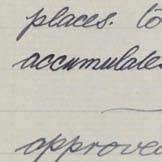 places. to
accumulates
approved